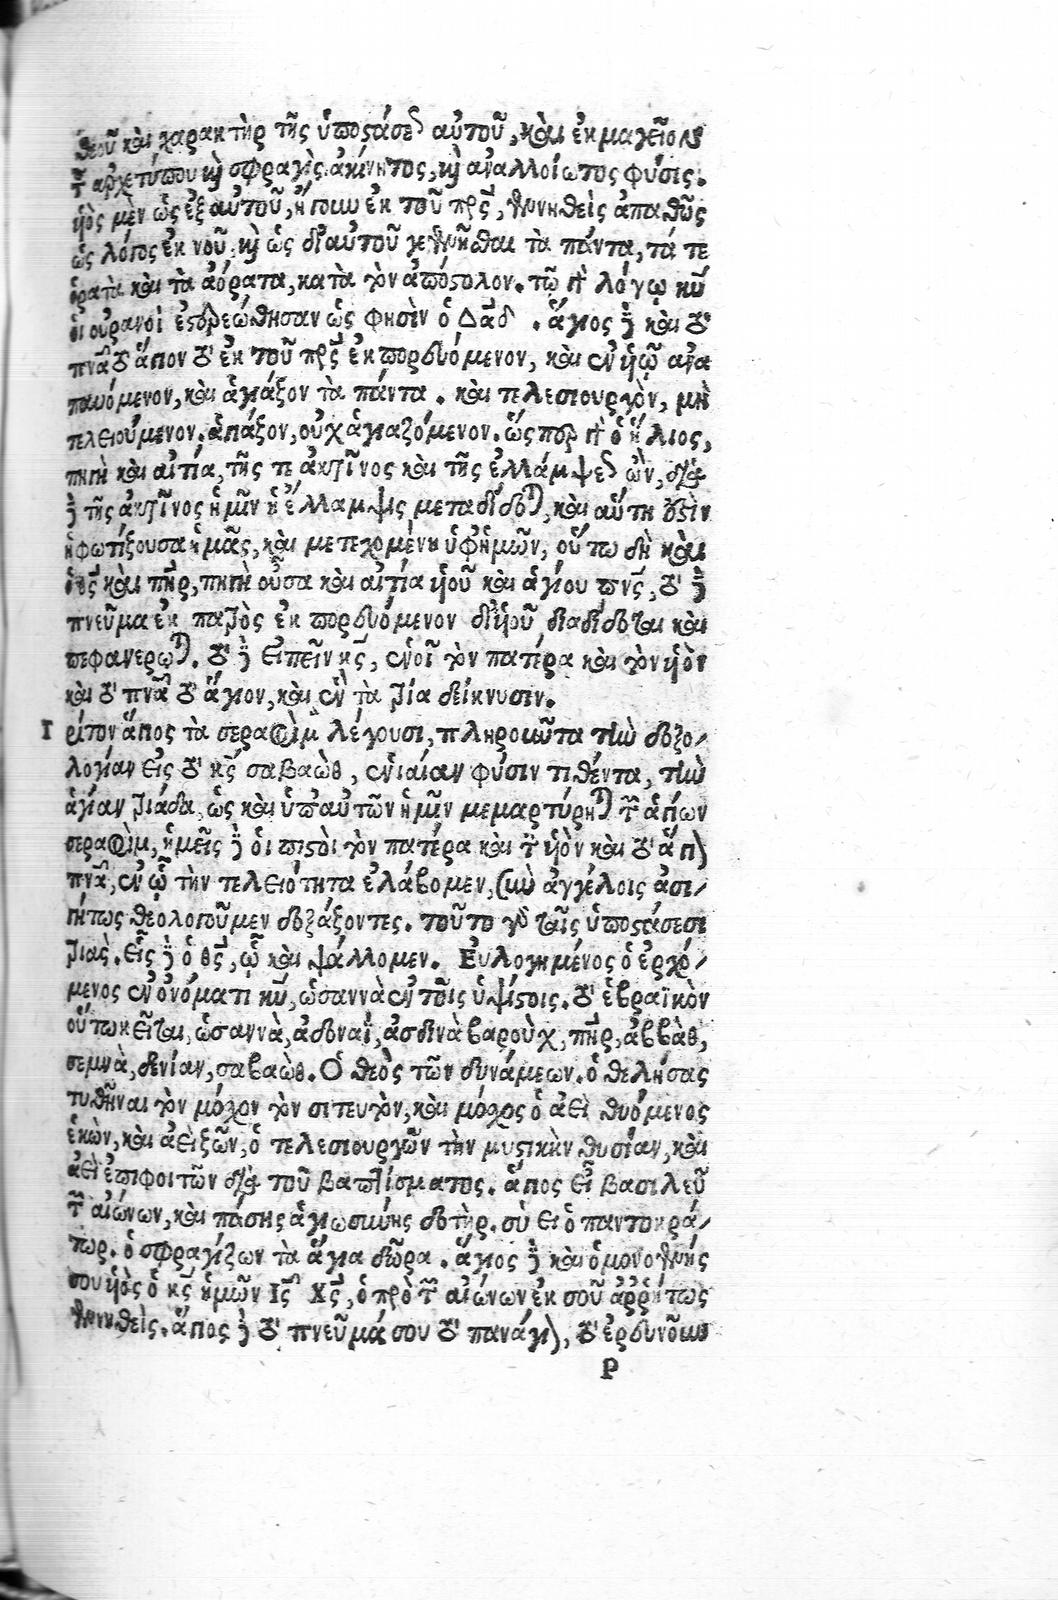 θεοῦ καὶ χαρακτὴρ τῆς ὑποστάσεως αὐτοῦ, καὶ ἐκμαγεῖον
τοῦ ἀρχετύπου καὶ σφραγὶς ἀκίνητος, καὶ ἀναλλοίωτος φύσις.
υἱὸς μὲν ὡς ἐξ αὐτοῦ, ἤγουν ἐκ τοῦ πρς, γεννηθεὶς ἀπαθῶς
ὡς λόγος ἐκ νοῦ, καὶ ὡς δι' αὐτοῦ γεγενῆσθαι τὰ πάντα, τά τε
ὁρατὰ καὶ τὰ ἀόρατα, κατὰ τὸν ἀπόστολον. τῷ γὰρ λόγῳ κυ
οἱ οὐρανοὶ ἐστερεώθησαν ὡς φησὶν ὁ Δαδ. ἅγιος δὲ καὶ τὸ
πνα τὸ ἅγιον τὸ ἐκ τοῦ πρς ἐκπορευόμενον, καὶ ἐν υἱῷ ἀνα
παυόμενον, καὶ ἁγιάζον τὰ πάντα. καὶ τελεσιουργὸν, μὴ
τελειούμενον. ἁγιάζον, οὐχ ἁγιαζόμενον. ὥσπερ γὰρ ὁ ἥλιος,
πηγὴ καὶ αἰτία, τῆς τε ἀκτῖνος καὶ τῆς ἐλλάμψεως ὢν, διὰ
δὲ τῆς ἀκτῖνος ἡμῖν ἡ ἔλλαμψις μεταδίδοται, καὶ αὕτη ἐστὶν
ἡ φωτίζουσα ἡμᾶς, καὶ μετεχομένη ὑφ' ἡμῶν, οὕτω δὴ καὶ
ὁ θς καὶ πηρ, πηγὴ οὖσα καὶ αἰτία υἱοῦ καὶ ἁγίου πνς, τὸ δὲ
πνεῦμα ἐκ πατρὸς ἐκπορευόμενον δι' υἱοῦ διαδίδοται καὶ
πεφανέρωται. τὸ δὲ εἰπεῖν κς, ἐννοεῖ τὸν πατέρα καὶ τὸν υἱὸν
καὶ τὸ πνα τὸ ἅγιον, καὶ ἐν τὰ τρία δείκνυσιν.
Τ ρίτον ἅγιος τὰ σεραφὶμ λέγουσι, πληροῦντα τὴν δοξο/
λογίαν εἰς τὸ κς σαβαὼθ, ἑνιαίαν φύσιν τιθέντα, τὴν
ἁγίαν τριάδα, ὡς καὶ ὑπ' αὐτῶν ἡμῖν μεμαρτύρηται τῶν ἁγίων
σεραφὶμ, ἡμεῖς δὲ οἱ πιστοὶ τὸν πατέρα καὶ τὸν υἱὸν καὶ τὸ ἅγιον
πνα, ἐν ᾧ τὴν τελειότητα ἐλάβομεν, σὺν ἀγγέλοις ἀσι/
γήτως θεολογοῦμεν δοξάζοντες. τοῦτο γὰρ ταῖς ὑποστάσεσι
τριὰς. εἷς δὲ ὁ θς, ᾧ καὶ ψάλλομεν. Εὐλογημένος ὁ ἐρχό/
μενος ἐν ὀνόματι κυ, ὡσαννὰ ἐν τοῖς ὑψίστοις. τὸ ἑβραϊκὸν
οὕτω κεῖται, ὡσαννὰ, ἀδοναΐ, ἀσδινὰ βαροὺχ, πηρ, ἀββᾶθ,
σεμνὰ, δενίαν, σαβαὼθ. Ὁ θεὸς τῶν δυνάμεων. ὁ θελήσας
τυθῆναι τὸν μόσχον τὸν σιτευτὸν, καὶ μόσχος ὁ ἀεὶ θυόμενος
ἑκὼν, καὶ ἀεὶ ζῶν, ὁ τελεσιουργῶν τὴν μυστικὴν θυσίαν, καὶ
ἀεὶ ἐπιφοιτῶν διὰ τοῦ βαπτίσματος. ἅγιος εἶ βασιλεῦ
τῶν αἰώνων, καὶ πάσης ἁγιωσύνης δοτὴρ. σὺ εἶ ὁ παντοκρά/
τωρ. ὁ σφραγίζων τὰ ἅγια δῶρα. ἅγιος δὲ καὶ ὁ μονογενής
σου υἱὸς ὁ κς ἡμῶν Ις Χς, ὁ πρὸ τῶν αἰώνων ἐκ σοῦ ἀῤῥήτως
γεννηθεὶς. ἅγιος δὲ τὸ πνεῦμά σου τὸ πανάγιον, τὸ ἐρευνῶν
P